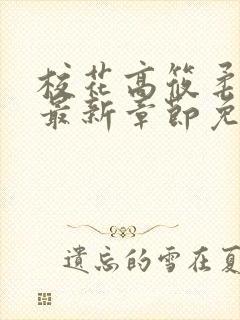 校花高筱柔
最新章節免
遺忘的雪在夏